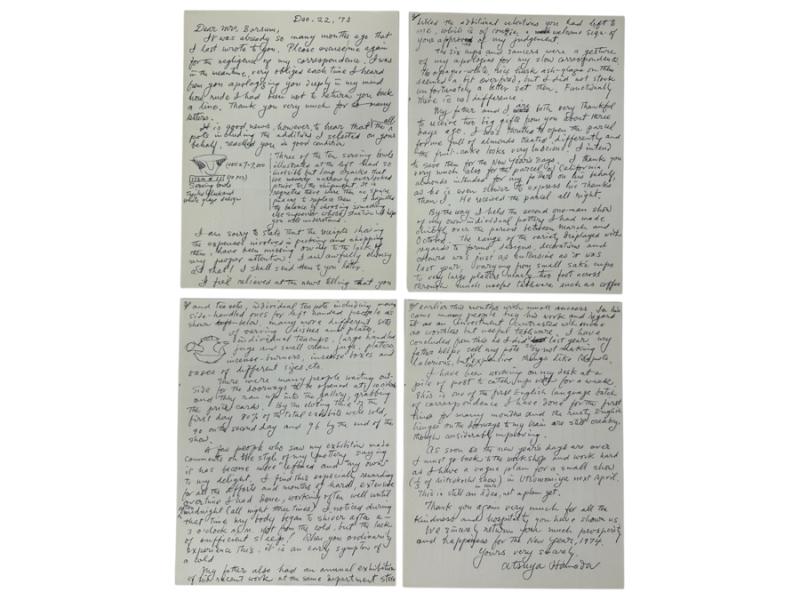 Dec. 22, '73
Dear Mrs. Barsum,
It was already so many months ago that
I last wrote to you. Please overseeme again
for the negligence of my correspondence. I was
in the meantime, very obliged each time I heard
from you apologizing you deeply in my mind
how rude I had been not to return you back
a line. Thank you very much for so many
letters.
It is good news, however, to hear that the all
pots including the additions I selected on your
behalf, reached you in good condition
Three of the ten serving bowls
illustrated at the left had so
invisible but long cracks that
we narrowly overlooked
prior to the shipment. It is
regretted there were then no spare
pieces to replace them. I
the balance by choosing something
else superior which I hope
you will understand.
Serving bowls
white glaze design
I am sorry to state that the weights sharing
the expenses involved in packing and shipping
them have been missing owing to the lack of
my proper attention. I am awfully
at that! I shall send them to you later.
I feel relieved at the news telling that you
liked the additional selections you had left to
me, which is of course, a welcome sign of
your approval of my judgement.
The six cups and saucers were a gesture
of my apologies for my slow correspondence.
The opaque white, rice husk ash-glaze on them
seemed a bit overfired, but I did not stock
unfortunately a better set then. Functionally
there is no difference.
My father and I are both very thankful
to receive two big gifts from you about three
days ago. I was thrilled to open the parcel
for me full of almonds treated differently and
the fruit-cake looks very luscious. I intend
to save them for the New Years days. I thank you
very much also for the parcel of California
almonds intended for my father on his behalf
as he is even slower to express his thanks
than I. He received the parcel all right.
By the way I held the second one-man show
of my own individual pottery I had made
chiefly over the period between March and
October. The range of the variety displayed with
regards to forms, designs, decorations and
others was just as extensive as it was
last year, varying from small sake cups
to very large platters nearly two foot across
through much useful tableware such as coffee
and tea sets, individual tea pots including many
side-handled ones for left handed people as
shown below, many more different sets
of serving dishes and plates,
individual teacups, large handled
jugs and small cream jugs, platters,
incense-burners, incense boxes and
vases of different sizes, etc.
There were many people waiting out-
side for the doorways to be opened at 10 o'clock
and they ran up into the gallery, grabbing
the price cards. By the closing time of the
first day 80% of the total exhibits were sold,
90 on the second day and 96 by the end of the
show.
A few people who saw my exhibition made
comments on the style of my pottery saying
it has become more refined and my own
to my delight. I find this especially rewarding
for all the efforts and months of hard, extensive
overtime I had done, working often well until
midnight (all night three times). I noticed during
that time my body began to shiver after 2 -
3 o'clock a.m. not from the cold, but the lack
of sufficient sleep! When you ordinarily
experience this, it is an early symptom of
a cold.
My father also had an annual exhibition
of his recent work at the same department store
earlier this month with much success. To him
came many people buy his work and regard
it as an investment
no worthless but useful tableware. I have
concluded from this as I did last year, my
father helps sell my pots by not making
laborious, but expensive things like teapots.
I have been working on my desk at a
pile of post to catch up with for a week.
This is one of the first English language batch
of correspondence I have done for the first
time for many months and the rusty English
hinges on the doorways to my brain are still creaky,
though considerably improving.
As soon as the new year's days are over
I must go back to the workshop and work hard
as I have a vague plan for a small show
(⅓ of Mitsukoshi show) in Utsunomiya next April.
This is still an idea, not a plan yet.
Thank you again very much for all the
kindness and hospitality you have shown us.
We sincerely return you much prosperity
and happiness for the New Year, 1974.
Yours very sincerely,
Atsuya Hamada